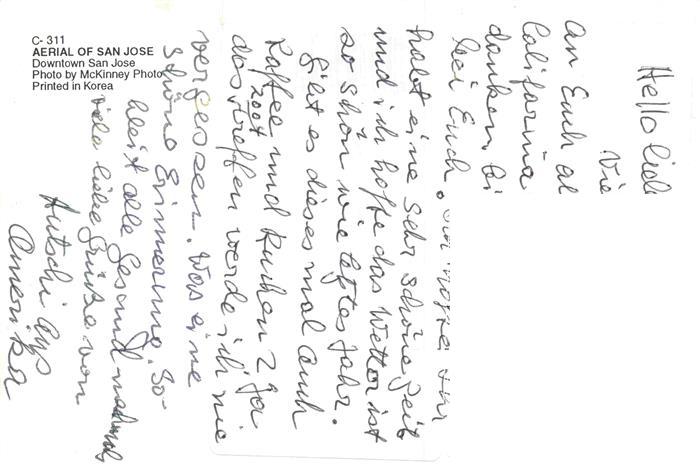 C- 311
AERIAL OF SAN JOSE
Downtown San Jose
Photo by McKinney Photo
Printed in Korea
Hello lieb
Vie
an Euch al
California
danken, bei
bei Euch.
habt eine sehr schöne Zeit
und ich hoffe das Wetter ist
so schön wie letztes Jahr.
Gibt es dieses mal auch
Kaffee und Kuchen?
2004
das treffen werde ich nie
vergessen. Was eine
schöne Erinnerung. So-
bleibt alle Gesund
viele liebe Grüße von
Hutschi aus
Amerika